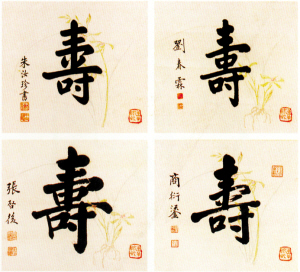 壽
朱汝珍書
壽
劉春霖
壽
張啓後
壽
商衍鎏